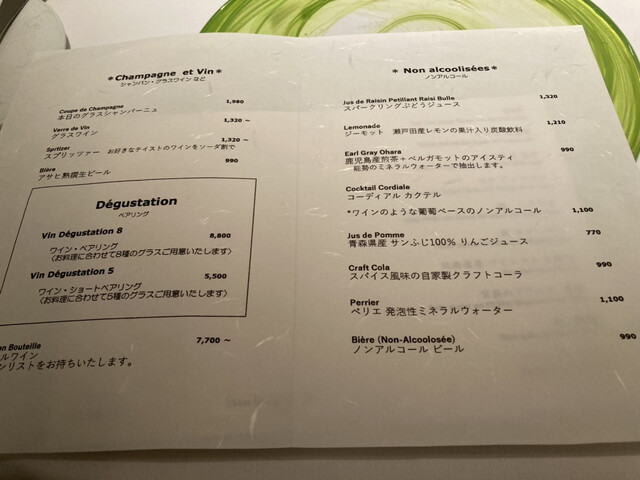 *Champagne et Vin*
シャンパン・グラスワイン など
Coupe de Champagne 1,980
本日のグラスシャンパーニュ
Verre de Vin 1,320 ～
グラスワイン
Spritzer 1,320 ～
スプリッツァー お好きなテイストのワインをソーダ割で
Bière 990
アサヒ熟撰生ビール
Dégustation
ペアリング
Vin Dégustation 8 8,800
ワイン・ペアリング
〈お料理に合わせて8種のグラスご用意いたします〉
Vin Dégustation 5 5,500
ワイン・ショートペアリング
〈お料理に合わせて5種のグラスご用意いたします〉
Bouteille 7,700 ～
ルワイン
ンリストをお持ちいたします。
* Non alcoolisées*
ノンアルコール
Jus de Raisin Petillant Raisi Bulle 1,320
スパークリングぶどうジュース
Lemonade 1,210
ジーモット 瀬戸田産レモンの果汁入り炭酸飲料
Earl Gray Ohara 990
鹿児島産煎茶＋ベルガモットのアイスティ
能勢のミネラルウォーターで抽出します。
Cocktail Cordiale
コーディアル カクテル
*ワインのような葡萄ベースのノンアルコール 1,100
Jus de Pomme 770
青森県産 サンふじ100% りんごジュース
Craft Cola 990
スパイス風味の自家製クラフトコーラ
Perrier 1,100
ペリエ 発泡性ミネラルウォーター
Bière (Non-Alcoolosée) 990
ノンアルコール ビール